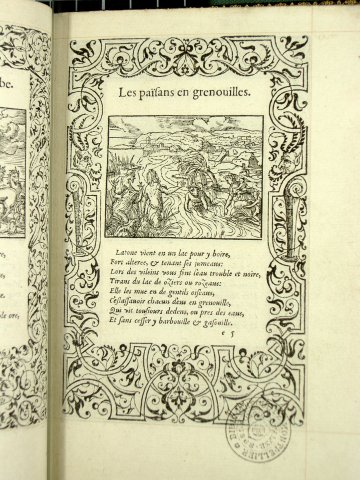 be.
Les païsans en grenouilles.
Latone vient en un lac pour y boire,
Fort alteree, & tenant ses iumeaux:
Lors des vileins vous font l'eau trouble et noire,
Tirans du lac de oziers ou rozeaux:
Elle les mue en de gentils oiseaux,
C'estassauoir chacun deus en grenouille,
Qui vit tousiours dedens, ou pres des eaux,
Et sans cesser y barbouille & gasouille.
c 5